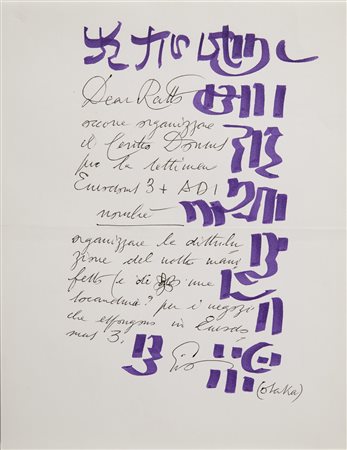 Dear Ratto
occorre organizzare
il Centro Domus
per la settimana
Eurodomus 3 + ADI
nonché
organizzare la distribu
zione del nostro mani
festo (e di una
locandina? per i negozi
che espongono in Eurodo
mus 3.
Gio
(Osaka)